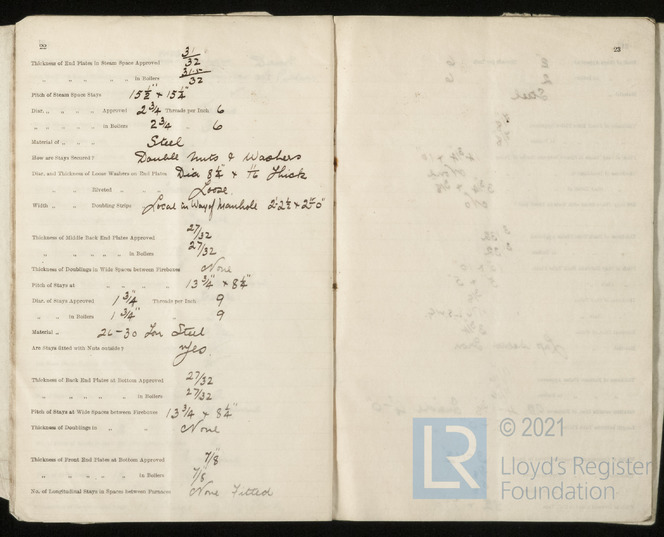 22
Thickness of End Plates in Steam Space Approved 31/32
„ „ „ „ „ in Boilers 31.5/32
Pitch of Steam Space Stays 15½" × 15¼"
Diar. „ „ „ „ Approved 2¾" Threads per Inch 6
„ „ „ „ in Boilers 2¾" „ 6
Material of „ „ „ Steel
How are Stays Secured? Double Nuts & Washers
Diar. and Thickness of Loose Washers on End Plates Dia 8¼" × Thick
„ „ Riveted „ „ „ Loose.
Width „ „ Doubling Strips Local in Way of Manhole
Thickness of Middle Back End Plates Approved 27/32
„ „ „ „ in Boilers 27/32
Thickness of Doublings in Wide Spaces between Fireboxes None
Pitch of Stays at „ „ „ „ 13¾" × 8¼"
Diar. of Stays Approved 1¾" Threads per Inch 9
„ „ in Boilers 1¾" „ 9
Material „ 26-30 Ton Steel
Are Stays fitted with Nuts outside? Yes.
Thickness of Back End Plates at Bottom Approved 27/32
„ „ „ „ „ in Boilers 27/32
Pitch of Stays at Wide Spaces between Fireboxes 13¾ × 8¼"
Thickness of Doublings in „ „ None
Thickness of Front End Plates at Bottom Approved 7/8"
„ „ „ „ „ in Boilers 7/8
No. of Longitudinal Stays in Spaces between Furnaces None Fitted
23
LR
© 2021
Lloyd's Register
Foundation